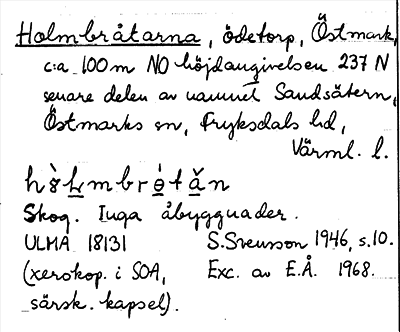 Holmbråtarna, ödetorp, Östmark,
c:a 100 m NO höjdangivelsen 237 N
senare delen av namnet Sandsätern,
Östmarks sn, Fryksdals hd,
Värml. l.
hòḻmbrètǎn
Skog. Inga åbyggnader.
ULMA 18131 S. Svensson 1946, s. 10.
(xerokop. i SOA, Exc. av E.Å. 1968.
särsk. kapsel).